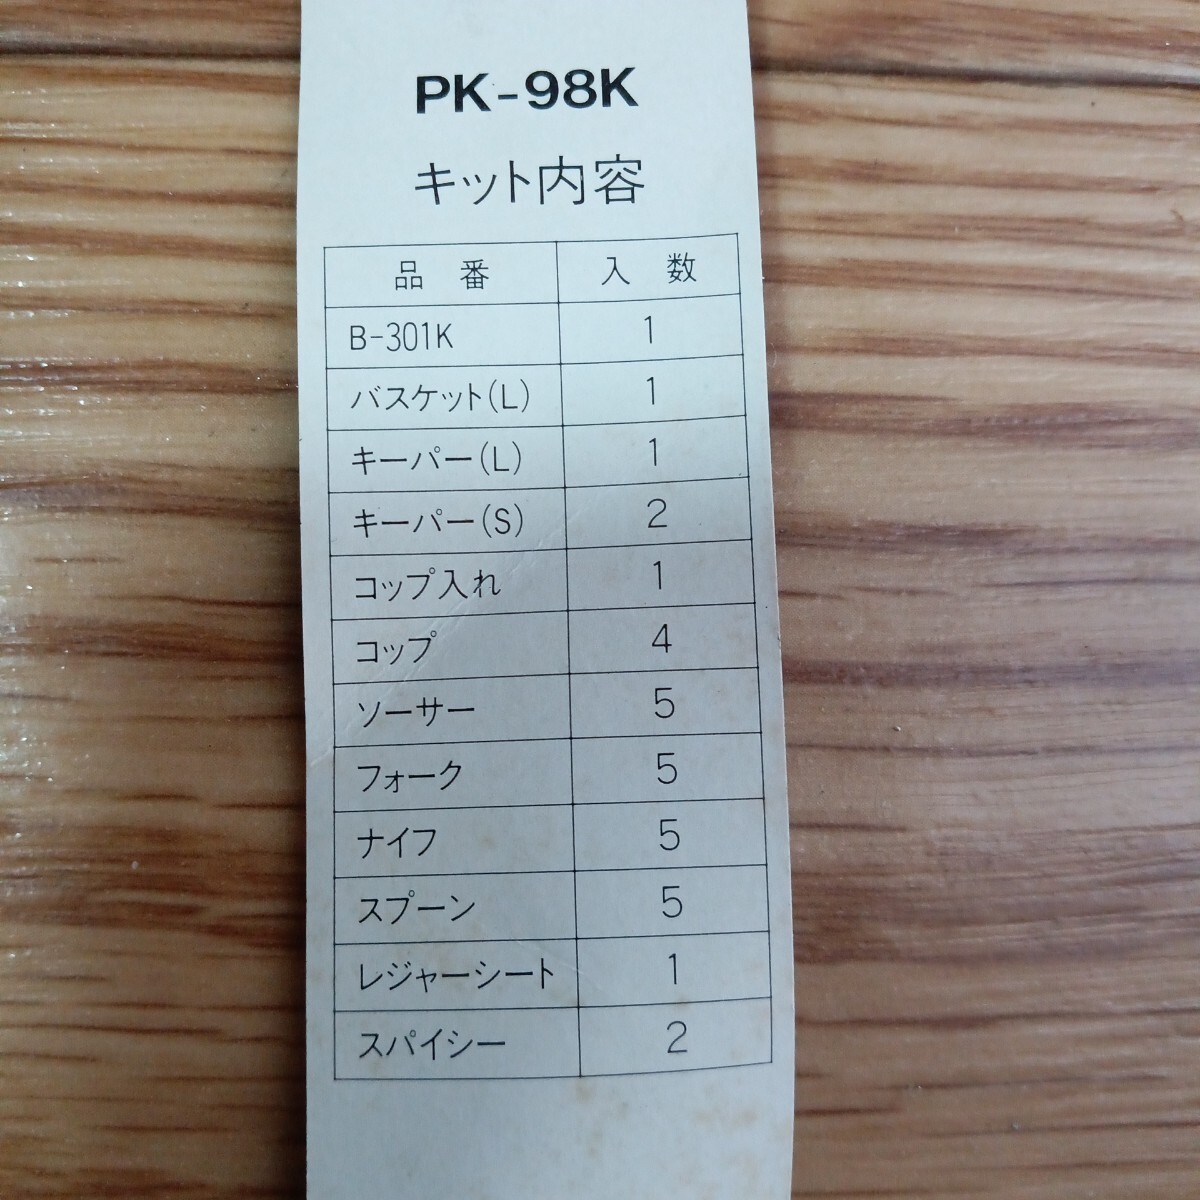 PK-98K
キット内容
品 番 入 数
B-301K 1
バスケット(L) 1
キーパー(L) 1
キーパー(S) 2
コップ入れ 1
コップ 4
ソーサー 5
フォーク 5
ナイフ 5
スプーン 5
レジャーシート 1
スパイシー 2